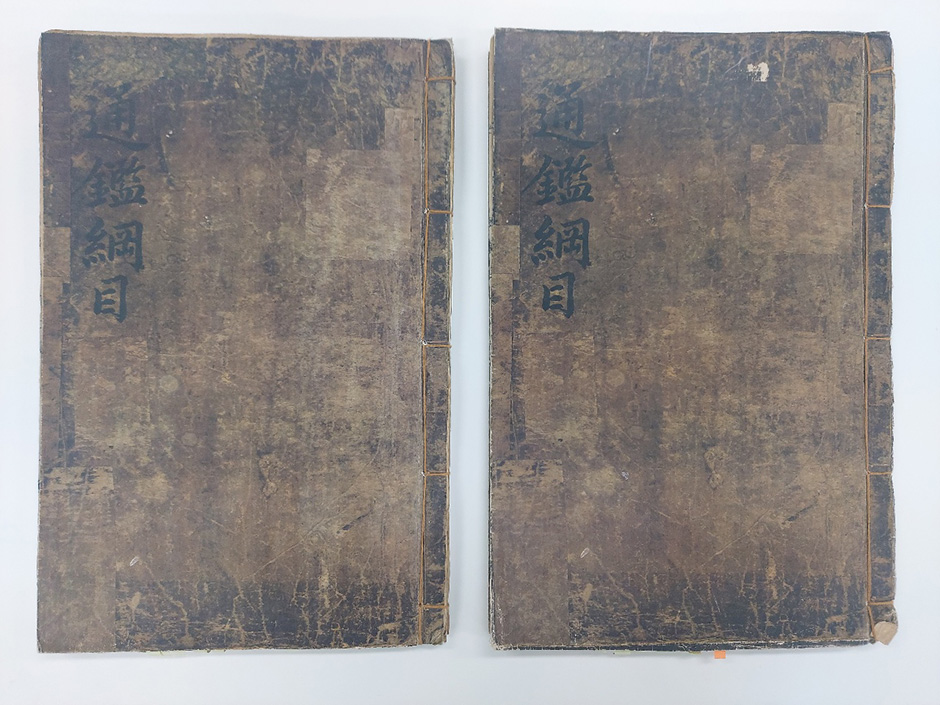 通鑑綱目
通鑑綱目